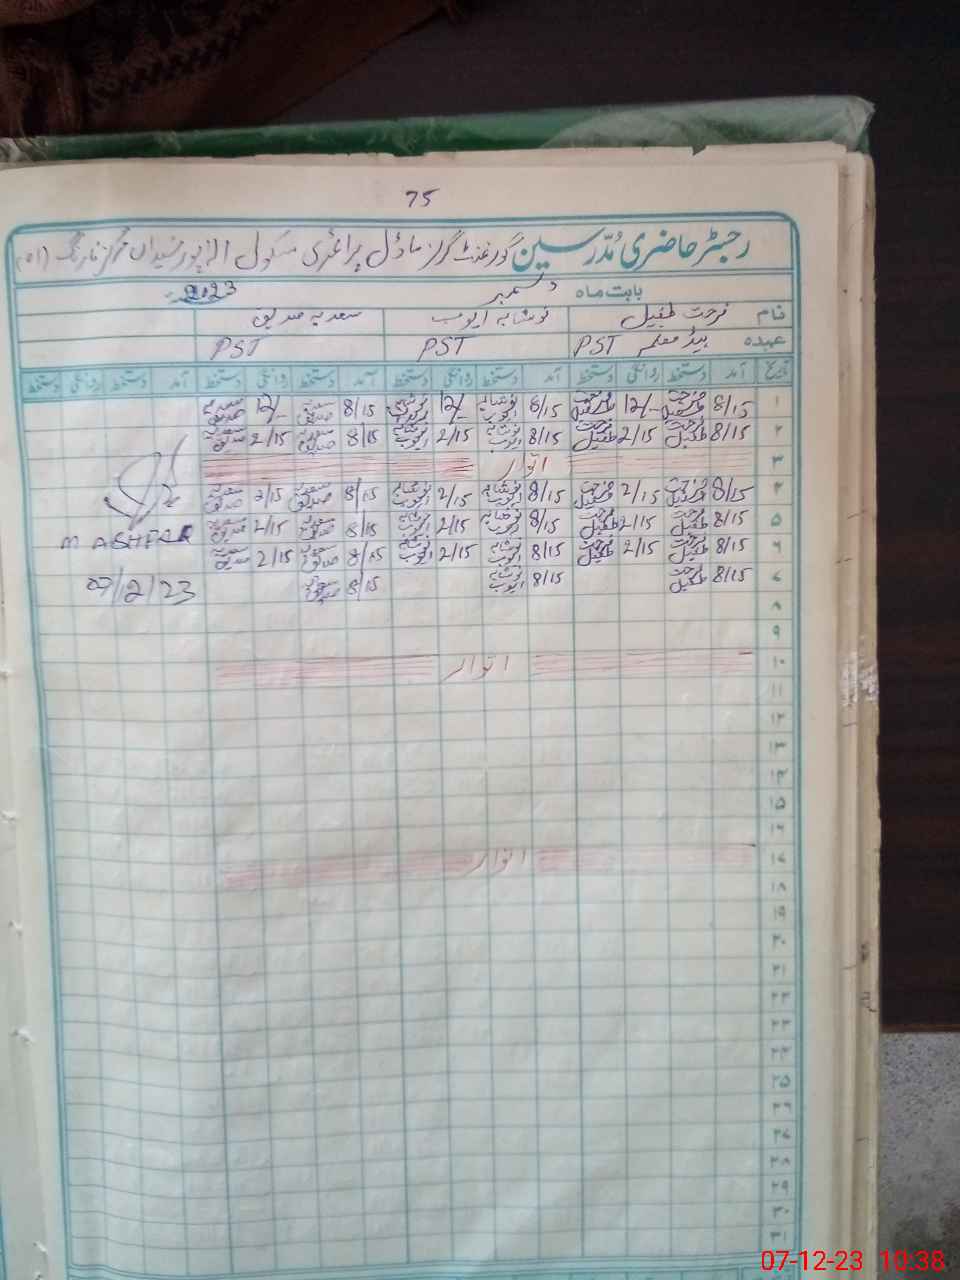 75
رجسٹر حاضری مُدرسین گورنمنٹ گرلز ماڈل پرائمری سکول
بابت ماہ دسمبر 2023
نام فرحت طفیل نوشابہ ایوب سعدیہ صدیق
عہدہ ہیڈ معلمہ PST PST PST
تاریخ آمد دستخط روانگی دستخط آمد دستخط روانگی دستخط آمد دستخط روانگی دستخط آمد دستخط روانگی دستخط
۱ 8/15 فرحت طفیل 12/- فرحت طفیل 8/15 نوشابہ ایوب 12/- نوشابہ ایوب 8/15 سعدیہ صدیق 12/- سعدیہ صدیق
۲ 8/15 فرحت طفیل 2/15 فرحت طفیل 8/15 نوشابہ ایوب 2/15 نوشابہ ایوب 8/15 سعدیہ صدیق 2/15 سعدیہ صدیق
۳ اتوار
۴ 8/15 فرحت طفیل 2/15 فرحت طفیل 8/15 نوشابہ ایوب 2/15 نوشابہ ایوب 8/15 سعدیہ صدیق 2/15 سعدیہ صدیق
۵ 8/15 فرحت طفیل 2/15 فرحت طفیل 8/15 نوشابہ ایوب 2/15 نوشابہ ایوب 8/15 سعدیہ صدیق 2/15 سعدیہ صدیق
M ASHFAQ
۶ 8/15 فرحت طفیل 2/15 فرحت طفیل 8/15 نوشابہ ایوب 2/15 نوشابہ ایوب 8/15 سعدیہ صدیق 2/15 سعدیہ صدیق
۷ 8/15 فرحت طفیل 8/15 نوشابہ ایوب 8/15 سعدیہ صدیق 07/12/23
۸
۹
۱۰ اتوار
۱۱
۱۲
۱۳
۱۴
۱۵
۱۶
۱۷ اتوار
۱۸
۱۹
۲۰
۲۱
۲۲
۲۳
۲۴
۲۵
۲۶
۲۷
۲۸
۲۹
۳۰
۳۱
07-12-23 10:38